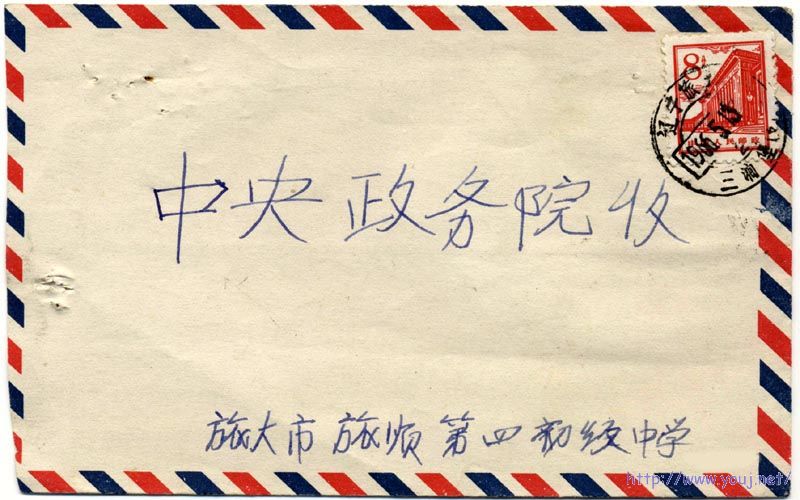 8
1966.5.
中央政务院收
旅大市旅顺第四初级中学
http://www.youj.net/